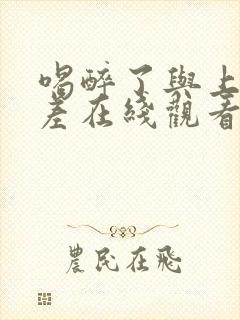 喝醉了與上
差在綫觀看
農民在飛